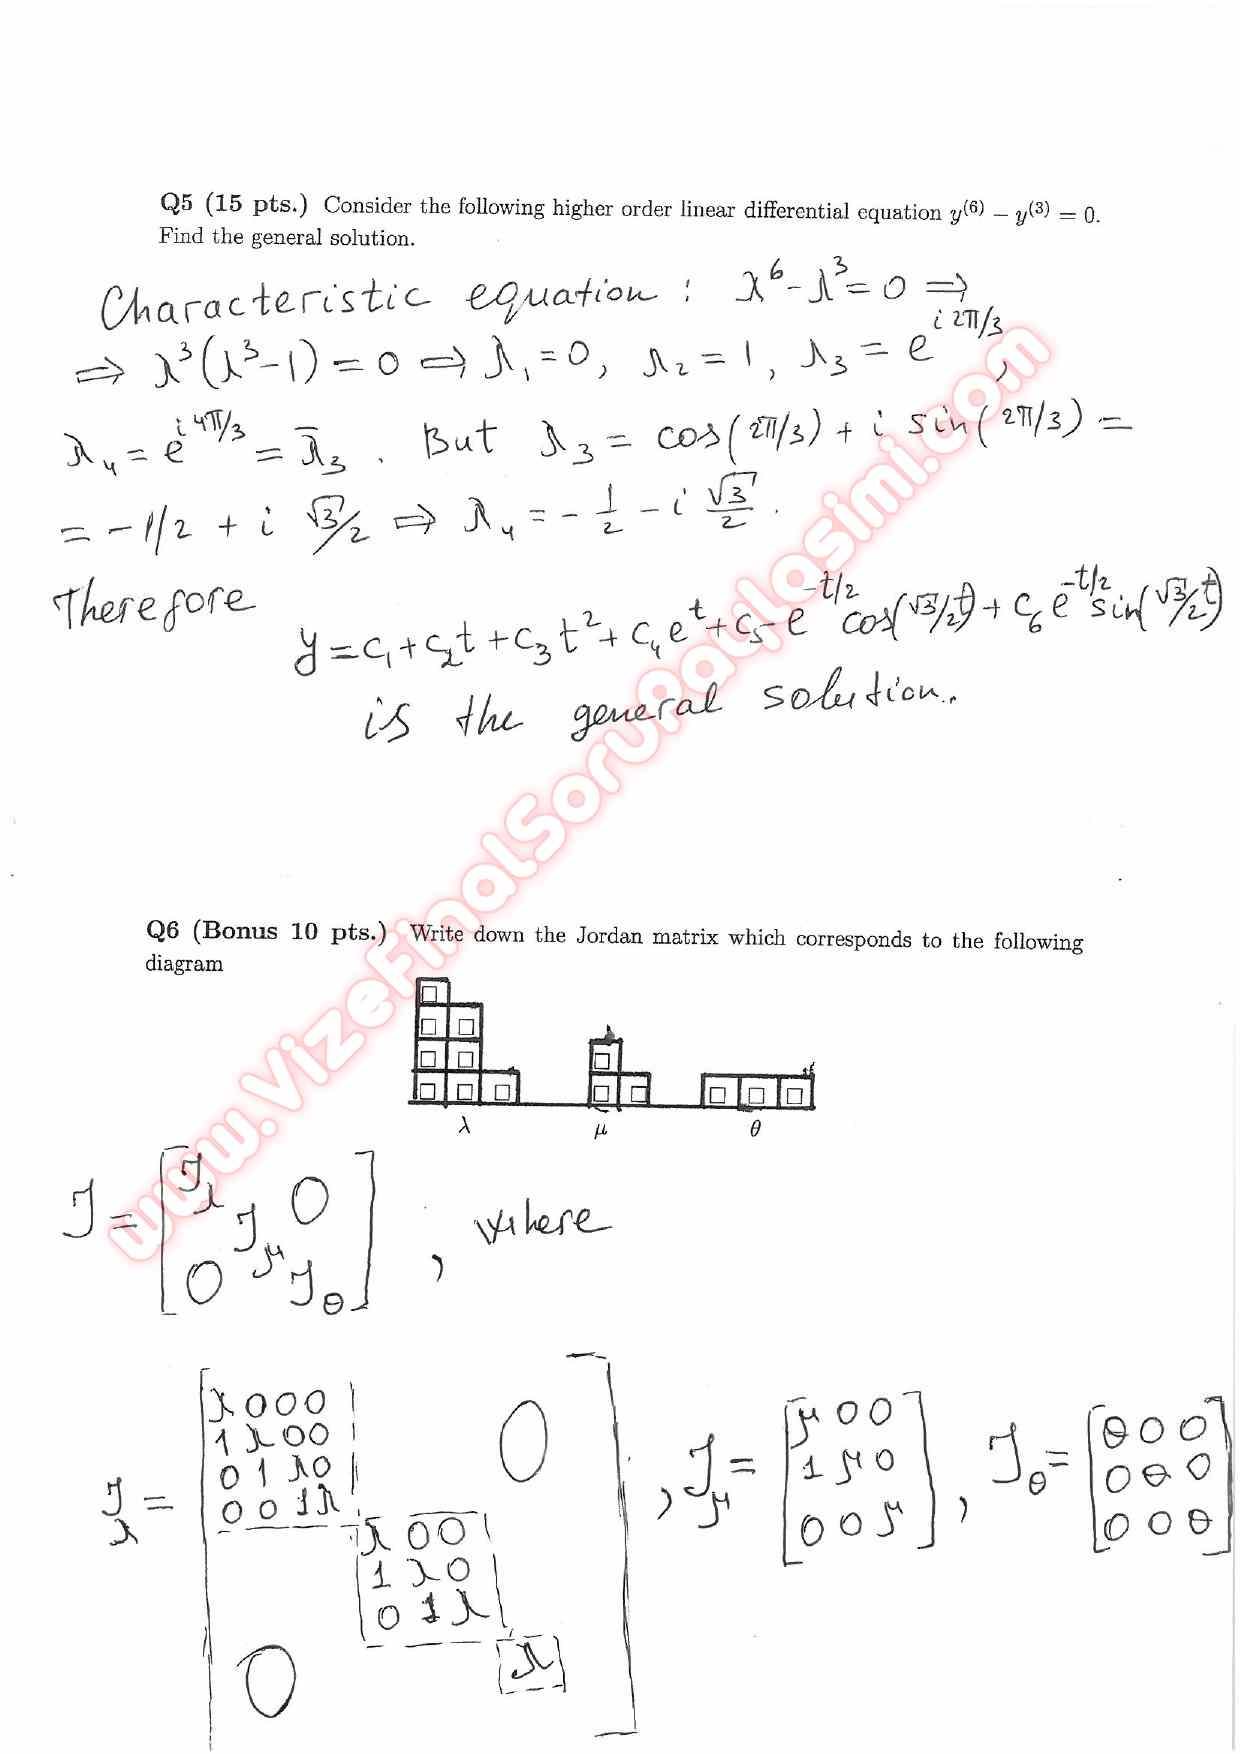 Q5 (15 pts.) Consider the following higher order linear differential equation y⁽⁶⁾ − y⁽³⁾ = 0.
Find the general solution.
Characteristic equation : λ⁶ - λ³ = 0 ⇒
⇒ λ³(λ³-1) = 0 ⇒ λ₁ = 0, λ₂ = 1, λ₃ = e^{i 2π/3},
λ₄ = e^{i 4π/3} = λ̄₃ . But λ₃ = cos(2π/3) + i sin(2π/3) =
= -1/2 + i √3/2 ⇒ λ₄ = - 1/2 - i √3/2 .
Therefore
y = c₁ + c₂t + c₃t² + c₄e^t + c₅e^{-t/2} cos(√3/2 t) + c₆ e^{-t/2} sin(√3/2 t)
is the general solution.
Q6 (Bonus 10 pts.) Write down the Jordan matrix which corresponds to the following
diagram
λ μ θ
J = [ J_λ J_μ 0 0 J_θ ] , where
J_λ = [ λ 0 0 0
1 λ 0 0
0 1 λ 0
0 0 1 λ
λ 0 0
1 λ 0
0 1 λ
λ
0 0 ] ,
J_μ = [ μ 0 0
1 μ 0
0 0 μ ] ,
J_θ = [ θ 0 0
0 θ 0
0 0 θ ]
www.VizeFinalSoruPaylasimi.com